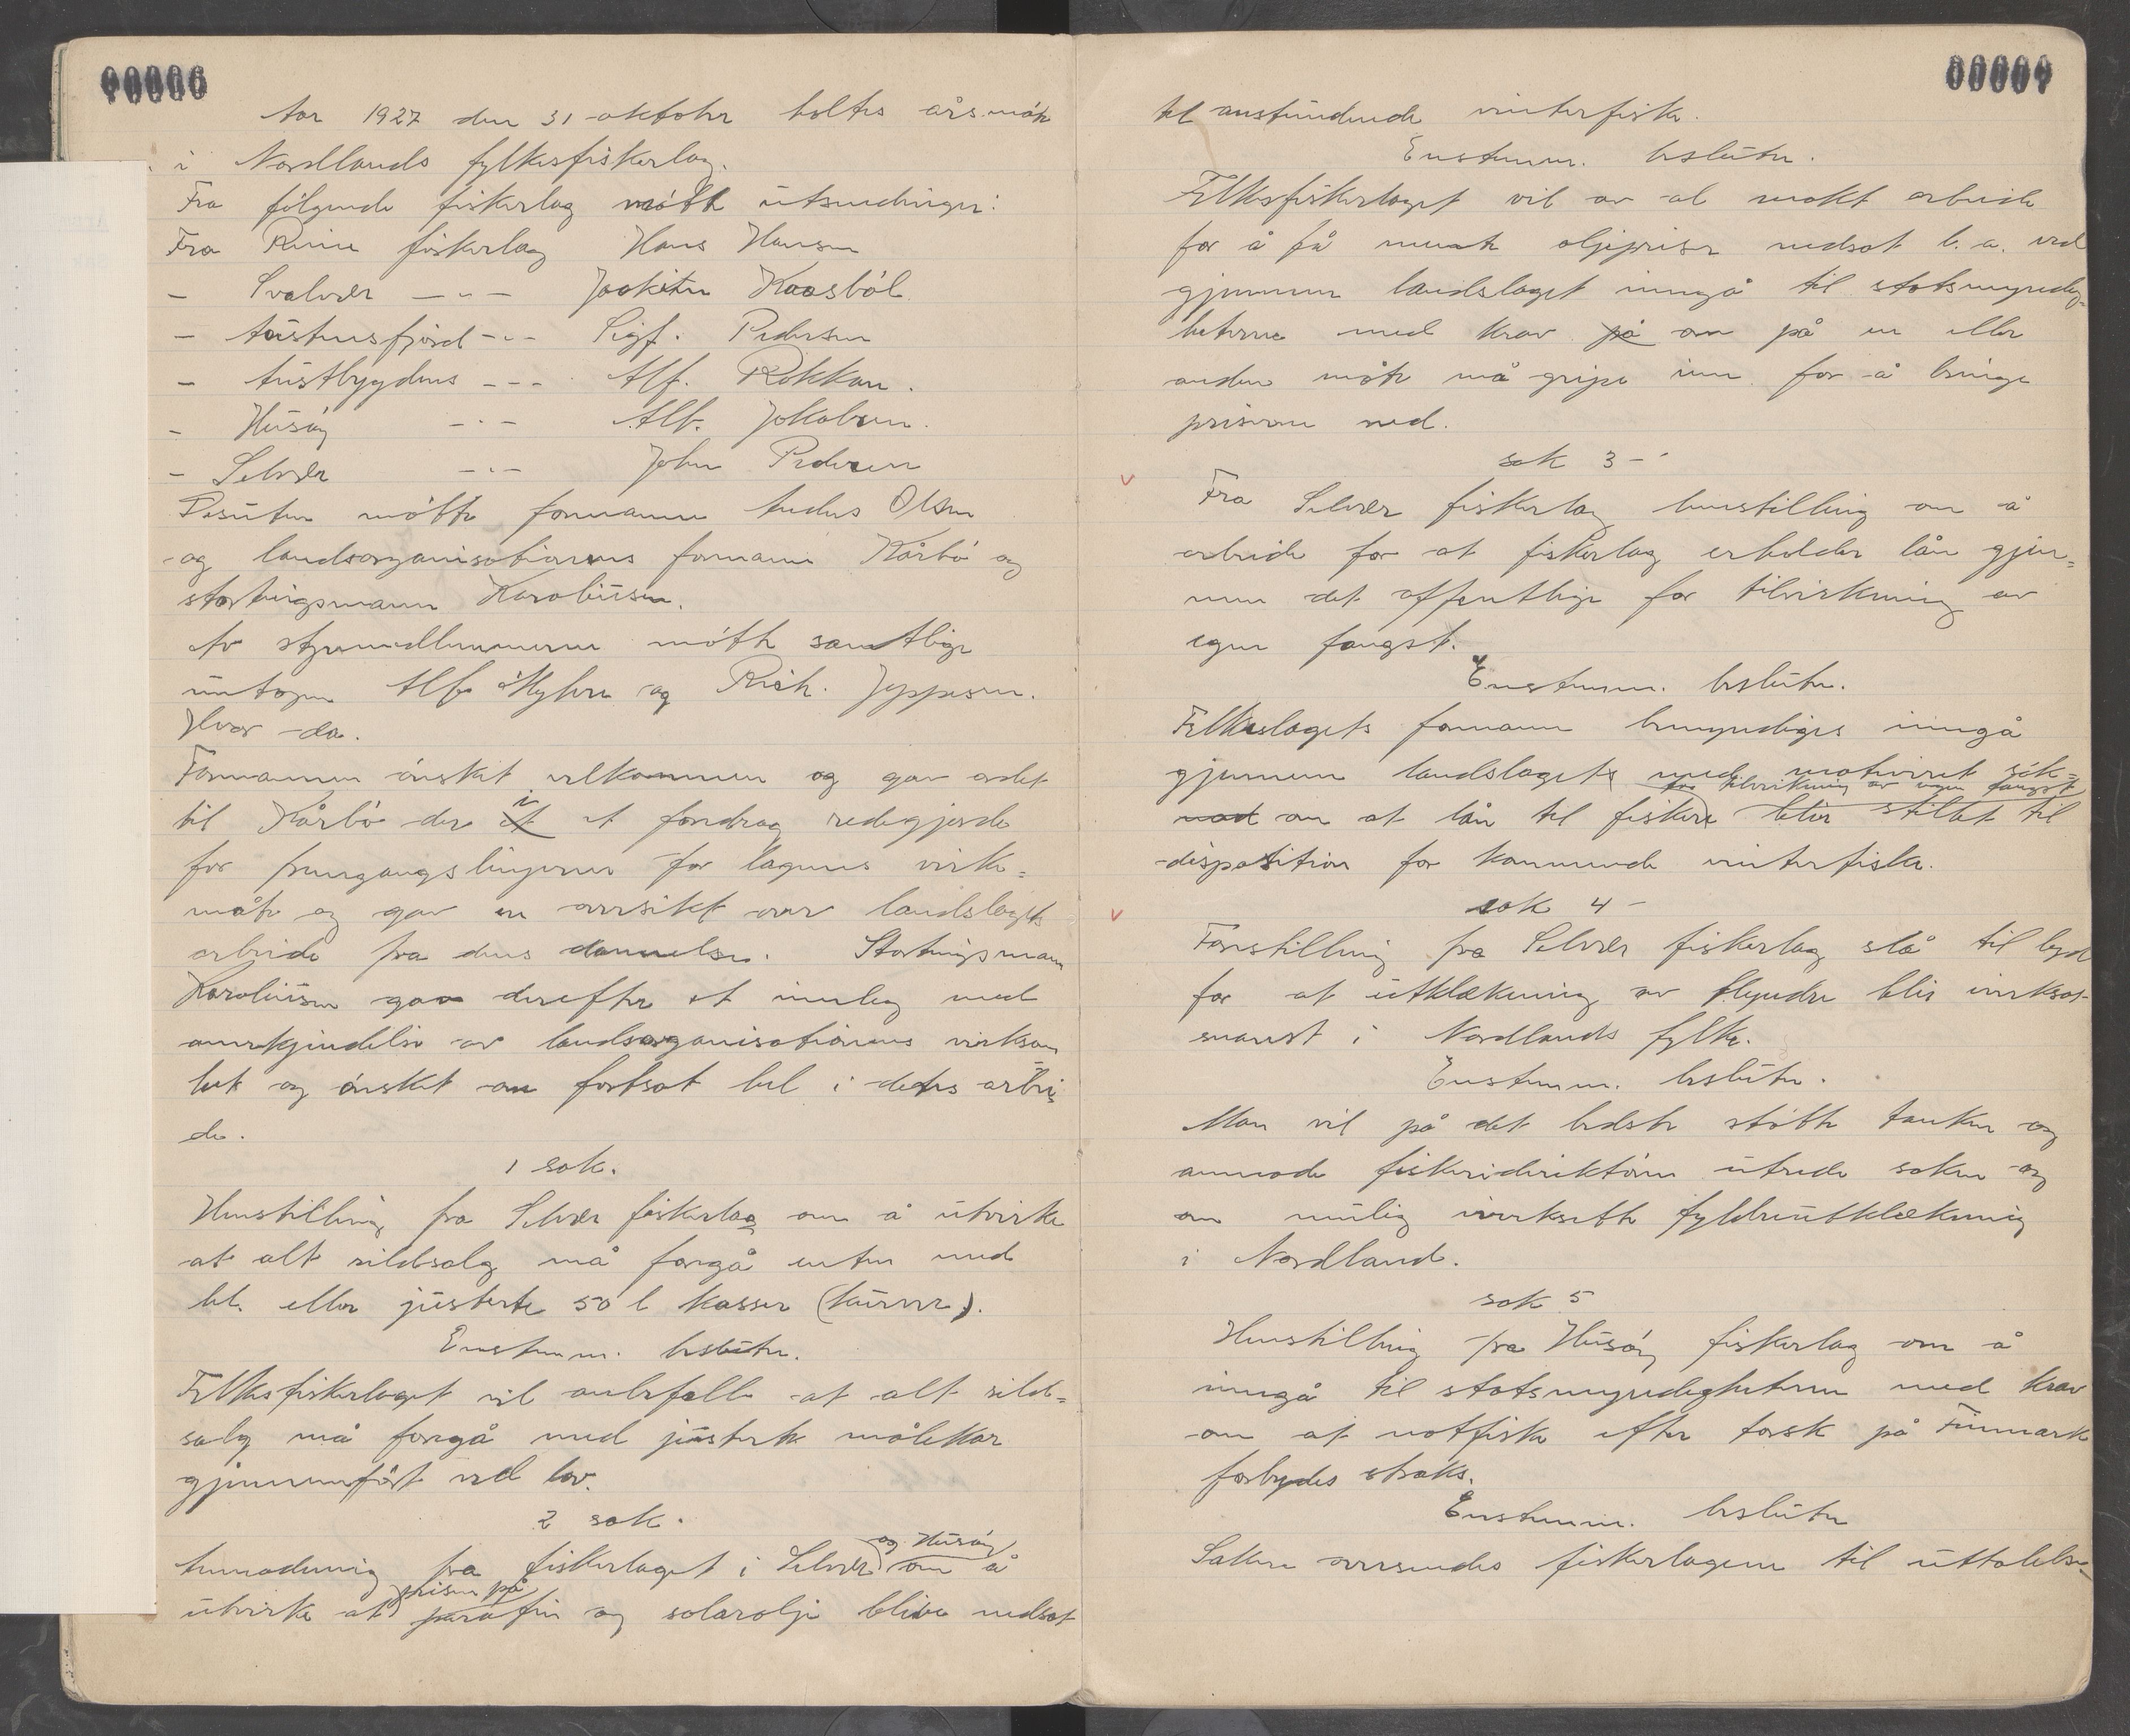 00006
Aar 1927 den 31 oktober holtes årsmøte
i Nordlands fylkesfiskerlag.
Fra følgende fiskerlag møtte utsendinger:
Fra Reine fiskerlag Hans Hansen
- Svolvær -"- Joakim Kaasbøl.
- Austnesfjord -"- Sigf. Pedersen
- Austbygdens -"- Alf. Rokkan.
- Husøy -"- Alb. Jakobsen.
- Selvær -"- John Pedersen
Desuten møtte formannen Andus Olsen
og landsorganisationens formann Kårbø og
stortingsmann Karoliussen.
Av styremedlemmerne møtte samtlige
untagen Alf Myhre og Rich. Jeppesen.
Hvor da.
Formannen ønsket velkommen og gav ordet
til Kårbø der i et foredrag redegjorde
for fremgangslinjerne for lagenes virke-
måte og gav en oversikt over landslagets
arbeide fra dens dannelse. Stortingsmann
Karoliussen gav derefter et innleg med
anerkjendelse av landsorganisationens virksom
het og ønsket om fortsat hel i dets arbei
de.
1 sak.
Henstilling fra Selvær fiskerlag om å utvirke
at alt sildsalg må foregå enten med
hl. eller justerte 50 l kasser (kurver).
Enstemm. besluttn.
Fylkesfiskerlaget vil anbefalle at alt sild-
salg må foregå med justerte målekar
gjennemført ved lov.
2 sak.
og Husøy
Anmodning fra fiskerlaget i Selvær om å
prisen på
utvirke at parafin og solarolje blive nedsat
00007
til anstundende vinterfiske.
Enstemm. beslutn.
Fylkesfiskerlaget vil av al makt arbeide
for å få nevnte oljepriser nedsat b. a. ved
gjennem landslaget inngå til statsmyndig-
heterne med krav på om på en eller
anden måte må gripe inn for å bringe
priserne ned.
sak 3 -
Fra Selvær fiskerlag henstilling om å
arbeide for at fiskerlag erholder lån gjen-
nem det offentlige for tilvirkning av
egen fangst.
Enstemm. beslutn.
Fylkeslagets formann bemyndiges inngå
gjennem landslagets med motiveret søk-
for tilvirkning av egen fangst
nad om at lån til fiskere blir stillet til
disposition for kommende vinterfiske.
sak 4 -
Forestilling fra Selvær fiskerlag slå til lyd
for at utklækning av flyndre blir iverksat
snarest i Nordlands fylke.
Enstemm. beslutn.
Man vil på det bedste støtte tanken og
anmode fiskeridirektøren utrede saken og
om mulig iverksette flyndreutklækning
i Nordland.
sak 5
Henstilling fra Husøy fiskerlag om å
inngå til statsmyndigheterne med krav
om at notfiske efter torsk på Finmark
forbydes straks.
Enstemm. beslutn
Saken oversendes fiskerlagene til uttalelse.